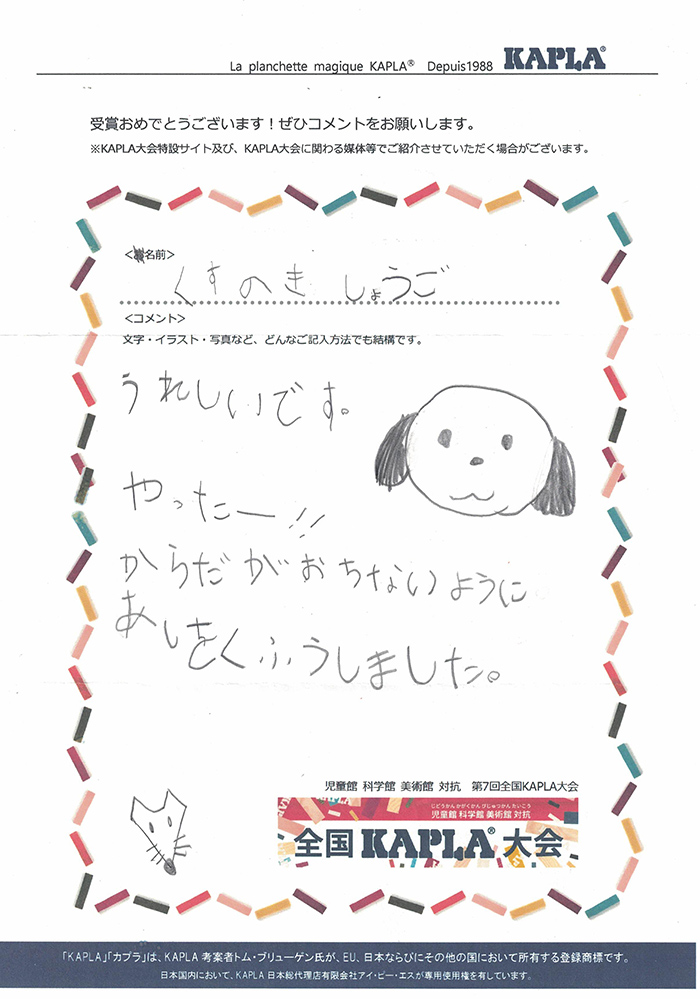 La planchette magique KAPLA® Depuis1988 KAPLA®
受賞おめでとうございます！ぜひコメントをお願いします。
※KAPLA大会特設サイト及び、KAPLA大会に関わる媒体等でご紹介させていただく場合がございます。
名前>
くすのき しょうご
<コメント>
文字・イラスト・写真など、どんなご記入方法でも結構です。
うれしいです。
やったー!!
からだがおちないように
あしをくふうしました。
児童館 科学館 美術館 対抗 第7回全国KAPLA大会
じどうかん かがくかん びじゅつかん たいこう
児童館 科学館 美術館 対抗
全国 KAPLA® 大会
「KAPLA」「カプラ」は、KAPLA 考案者トム・ブリューゲン氏が、EU、日本ならびにその他の国において所有する登録商標です。
日本国内において、KAPLA 日本総代理店有限会社アイ・ピー・エスが専用使用権を有しています。